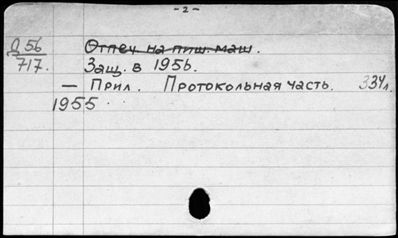 - 2 -
Д 56 Отпеч на пиш. маш.
717. Защ. в 1956.
— Прил. Протокольная часть. 334 л.
1955